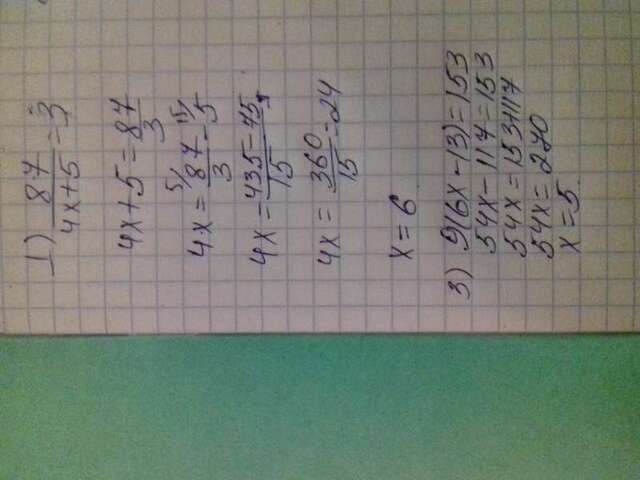 1) 87/4x+5 = 3
4x+5 = 87/3
4x = 5/87/3 - 15/5
4x = 435-45/15
4x = 360/15 = 24
x = 6
3) 9(6x-13)=153
54x-117=153
54x=153+117
54x=270
x=5